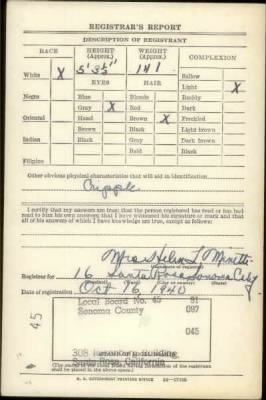 REGISTRAR'S REPORT
DESCRIPTION OF REGISTRANT
RACE HEIGHT (Approx.) WEIGHT (Approx.) COMPLEXION
White X 5' 3½" 141 Sallow
EYES HAIR Light X
Negro Blue Blonde Ruddy
Gray X Red Dark
Oriental Hazel Brown X Freckled
Brown Black Light brown
Indian Black Gray Dark brown
Bald Black
Filipino
Other obvious physical characteristics that will aid in identification
Cripple
I certify that my answers are true; that the person registered has read or has had
read to him his own answers; that I have witnessed his signature or mark and that
all of his answers of which I have knowledge are true, except as follows:
Mrs Helen L
(Signature of registrar)
Registrar for 16 Santa Rosa Sonoma
Date of registration Oct 16 1940
Local Board No. 45 91
Sonoma County 097
045
45
308
Santa Rosa, California
U. S. GOVERNMENT PRINTING OFFICE